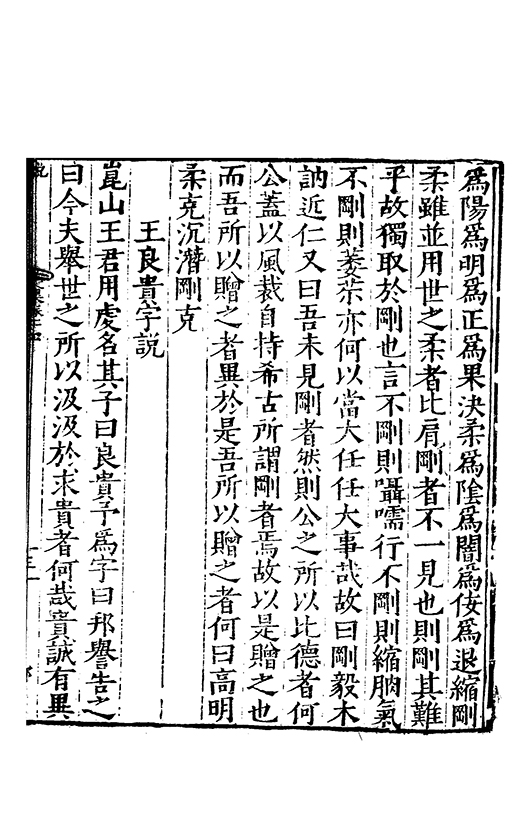 爲陽爲明爲正爲果決柔爲陰爲闇爲佞爲退縮剛
柔雖並用世之柔者比肩剛者不一見也則剛其難
乎故獨取於剛也言不剛則囁嚅行不剛則縮朒氣
不剛則萎苶亦何以當大任任大事哉故曰剛毅木
訥近仁又曰吾未見剛者然則公之所以比德者何
公蓋以風裁自持希古所謂剛者焉故以是贈之也
而吾所以贈之者異於是吾所以贈之者何曰高明
柔克沉潛剛克
王良貴字說
崑山王君用虔名其子曰良貴予爲字曰邦譽告之
曰今夫舉世之所以汲汲於求貴者何哉貴誠有異